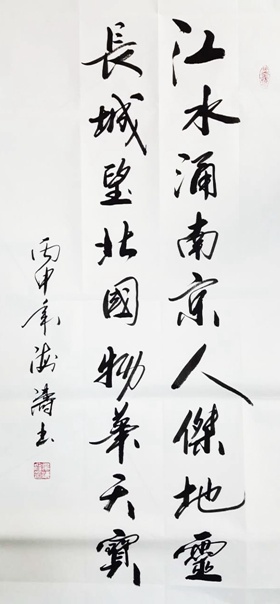 江水涌南京人傑地靈
長城望北國物華天寶
丙申年海濤書